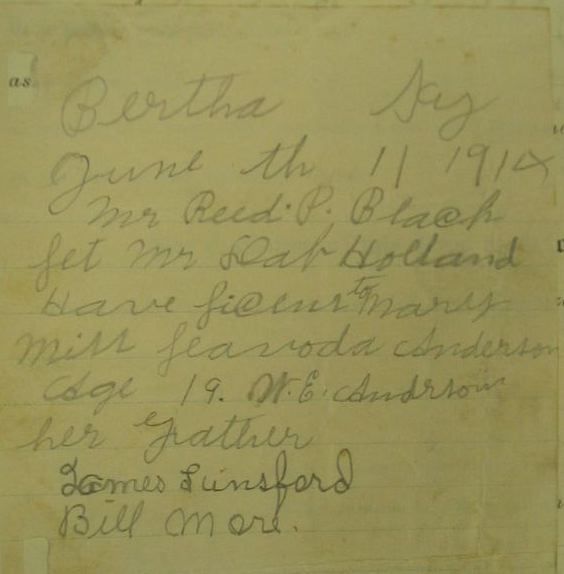 as
Bertha Ky
June th 11 1914
Mr Reed. P. Black
let Mr Dab Holland
Have licens to Mary
Miss Leavoda Anderson
Age 19. W. E. Andrson
her Father
James Lunsford
Bill More.